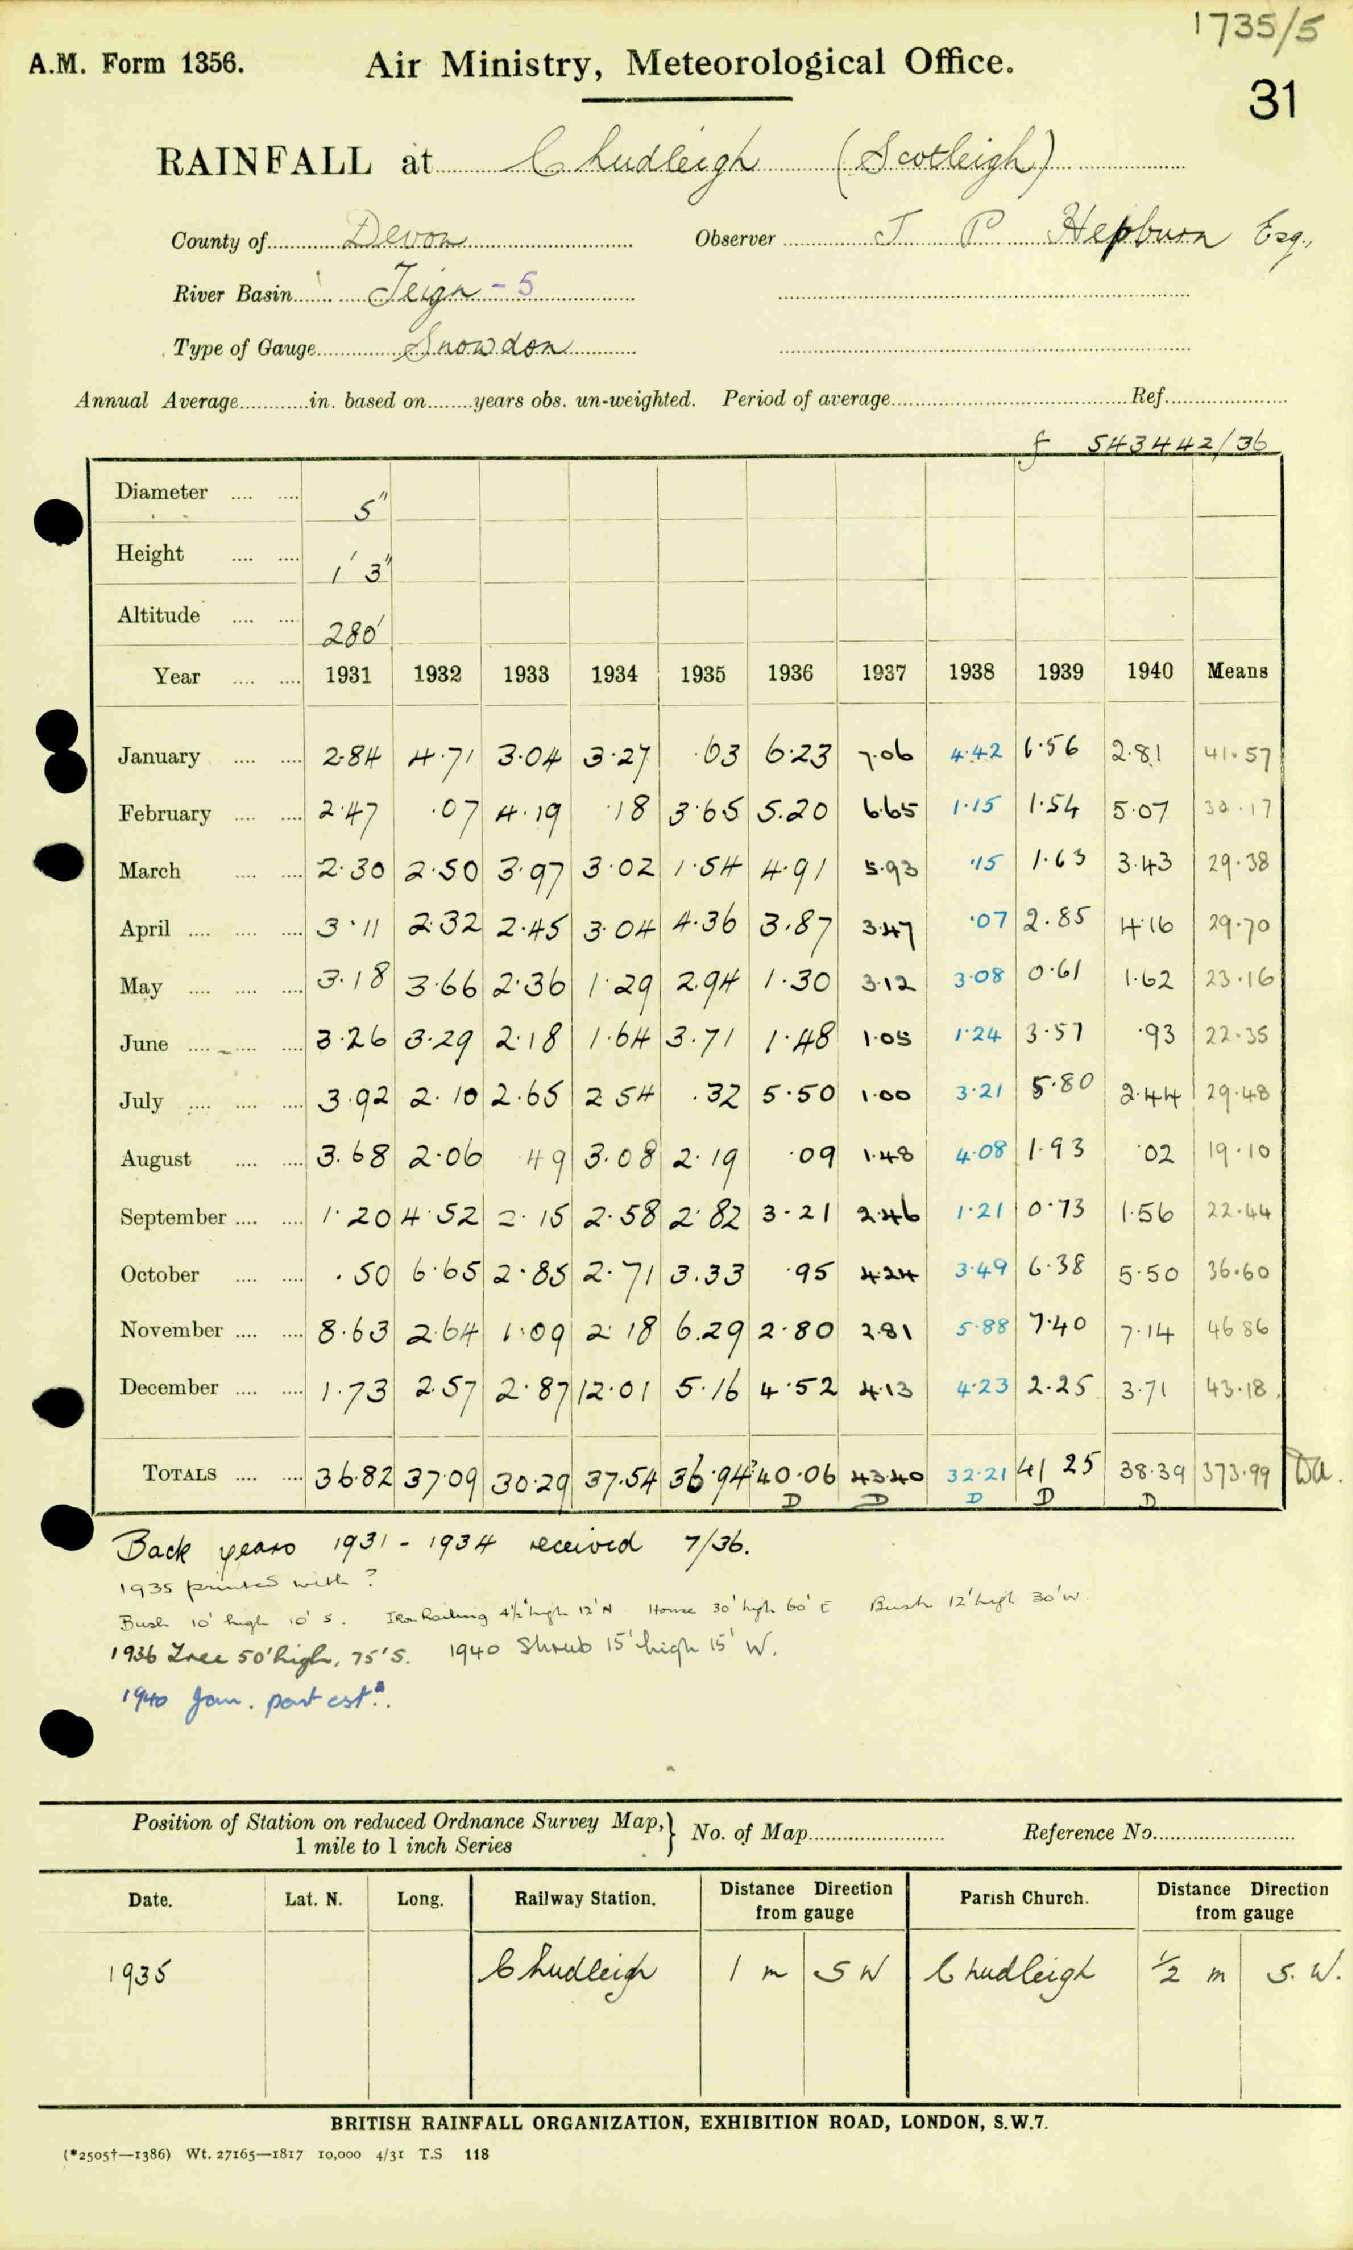 1735/5
A.M. Form 1356. Air Ministry, Meteorological Office.
31
RAINFALL at Chudleigh (Scotleigh)
County of Devon Observer J P Hepburn Esq.,
River Basin Teign - 5
Type of Gauge Snowdon
Annual Average in. based on years obs. un-weighted. Period of average Ref.
f 543442/36
Diameter 5"
Height 1' 3"
Altitude 280'
Year 1931 1932 1933 1934 1935 1936 1937 1938 1939 1940 Means
January 2.84 4.71 3.04 3.27 .63 6.23 7.06 4.42 6.56 2.81 41.57
February 2.47 .07 4.19 .18 3.65 5.20 6.65 1.15 1.54 5.07 30.17
March 2.30 2.50 3.97 3.02 1.54 4.91 5.93 .15 1.63 3.43 29.38
April 3.11 2.32 2.45 3.04 4.36 3.87 3.47 .07 2.85 4.16 29.70
May 3.18 3.66 2.36 1.29 2.94 1.30 3.12 3.08 0.61 1.62 23.16
June 3.26 3.29 2.18 1.64 3.71 1.48 1.05 1.24 3.57 .93 22.35
July 3.92 2.10 2.65 2 54 .32 5.50 1.00 3.21 5.80 2.44 29.48
August 3.68 2.06 49 3.08 2.19 .09 1.48 4.08 1.93 .02 19.10
September 1.20 4.52 2.15 2.58 2.82 3.21 2.46 1.21 0.73 1.56 22.44
October .50 6.65 2.85 2.71 3.33 .95 4.24 3.49 6.38 5.50 36.60
November 8.63 2.64 1.09 2.18 6.29 2.80 2.81 5.88 7.40 7.14 46 86
December 1.73 2.57 2.87 12.01 5.16 4.52 4.13 4.23 2.25 3.71 43.18
TOTALS 36.82 37.09 30.29 37.54 36.94 40.06 43.40 32.21 41 25 38.39 373.99
D D D D D
Back years 1931 - 1934 received 7/36.
1935 printed with ?
Bush 10' high 10' S. Iron Railing 4½' high 12' N House 30' high 60' E Bush 12' high 30' W.
1936 Tree 50' high, 75' S. 1940 Shrub 15' high 15' W.
1940 Jan. part est.d.
Position of Station on reduced Ordnance Survey Map,} No. of Map Reference No.
1 mile to 1 inch Series
Date. Lat. N. Long. Railway Station. Distance Direction from gauge Parish Church. Distance Direction from gauge
1935 Chudleigh 1 m S W Chudleigh ½ m S. W.
BRITISH RAINFALL ORGANIZATION, EXHIBITION ROAD, LONDON, S.W.7.
(*2505†—1386) Wt. 27165—1817 10,000 4/31 T.S 118